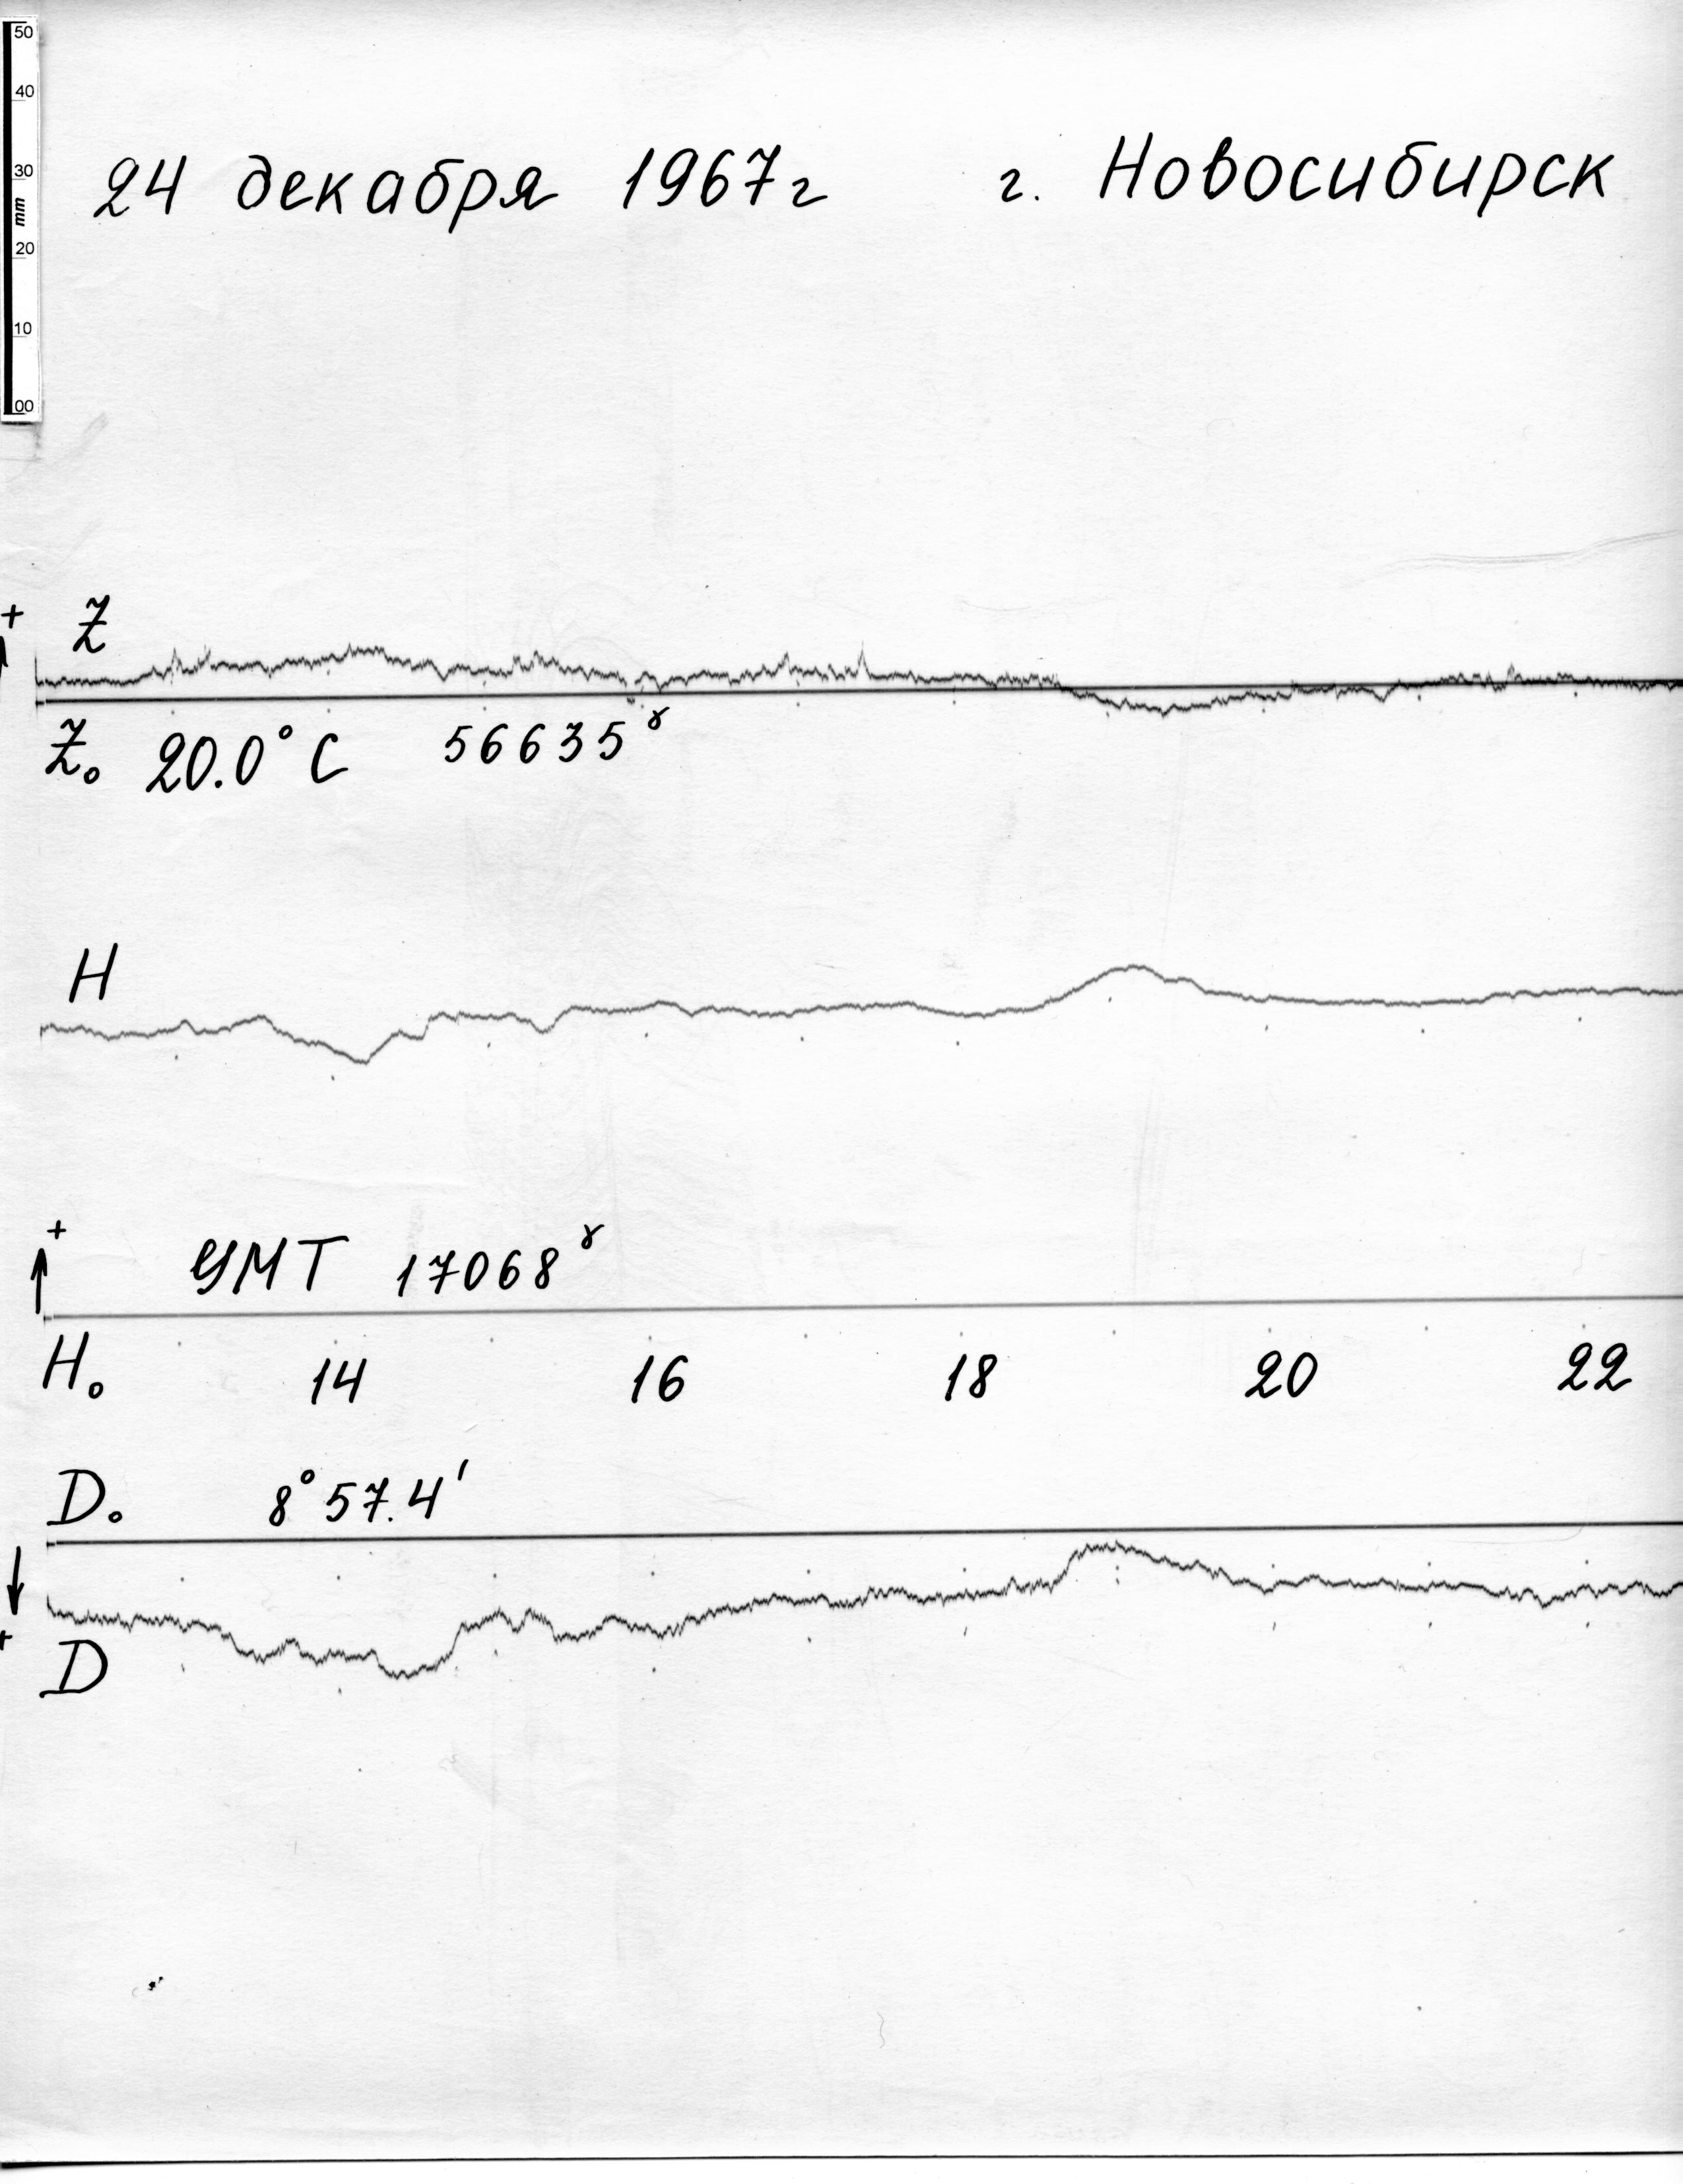 50
40
30
mm
20
10
00
24 декабря 1967г г. Новосибирск
+ Z
Z₀ 20.0° C 56635ˠ
H
+
УМТ 17068ˠ
H₀ 14 16 18 20 22
D₀ 8° 57.4'
+
D